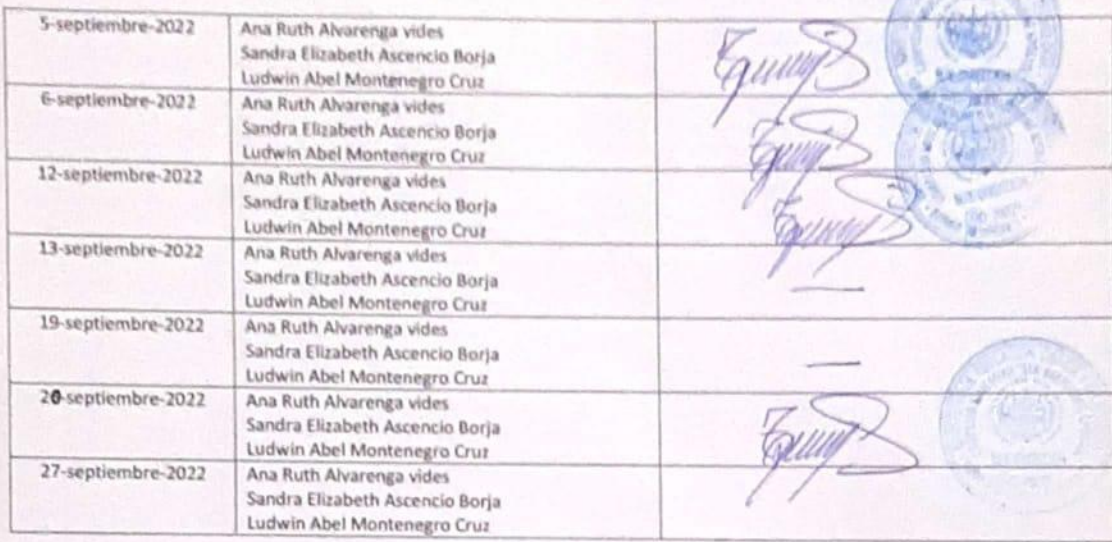 5-septiembre-2022
Ana Ruth Alvarenga vides
Sandra Elizabeth Ascencio Borja
Ludwin Abel Montenegro Cruz
6-septiembre-2022
Ana Ruth Alvarenga vides
Sandra Elizabeth Ascencio Borja
Ludwin Abel Montenegro Cruz
12-septiembre-2022
Ana Ruth Alvarenga vides
Sandra Elizabeth Ascencio Borja
Ludwin Abel Montenegro Cruz
13-septiembre-2022
Ana Ruth Alvarenga vides
Sandra Elizabeth Ascencio Borja
Ludwin Abel Montenegro Cruz
19-septiembre-2022
Ana Ruth Alvarenga vides
Sandra Elizabeth Ascencio Borja
Ludwin Abel Montenegro Cruz
20-septiembre-2022
Ana Ruth Alvarenga vides
Sandra Elizabeth Ascencio Borja
Ludwin Abel Montenegro Cruz
27-septiembre-2022
Ana Ruth Alvarenga vides
Sandra Elizabeth Ascencio Borja
Ludwin Abel Montenegro Cruz